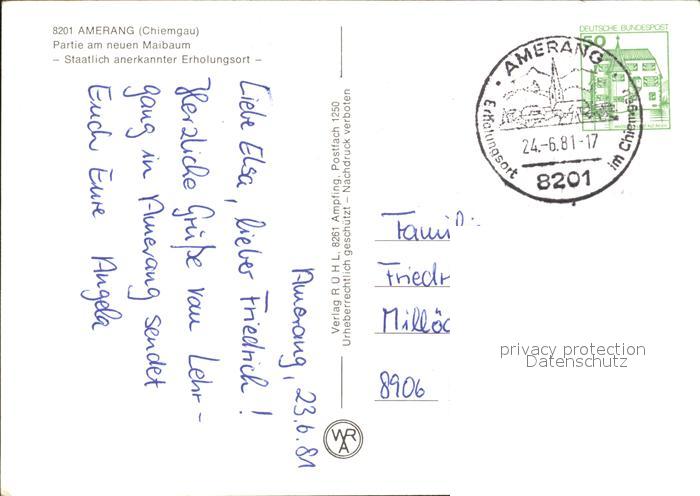 8201 AMERANG (Chiemgau)
Partie am neuen Maibaum
– Staatlich anerkannter Erholungsort –
Amerang, 23.6.81
Liebe Elsa, lieber Friedrich!
Herzliche Grüße vom Lehr-
gang in Amerang sendet
Euch Eure Angela
Verlag RÜHL, 8261 Ampfing, Postfach 1250
Urheberrechtlich geschützt – Nachdruck verboten
WRA
DEUTSCHE BUNDESPOST
50
AMERANG
24.-6.81-17
Erholungsort im Chiemgau
8201
Fami
Friedr
Millöc
8906
privacy protection
Datenschutz